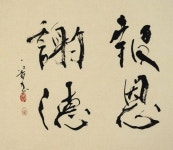 報恩
謝德